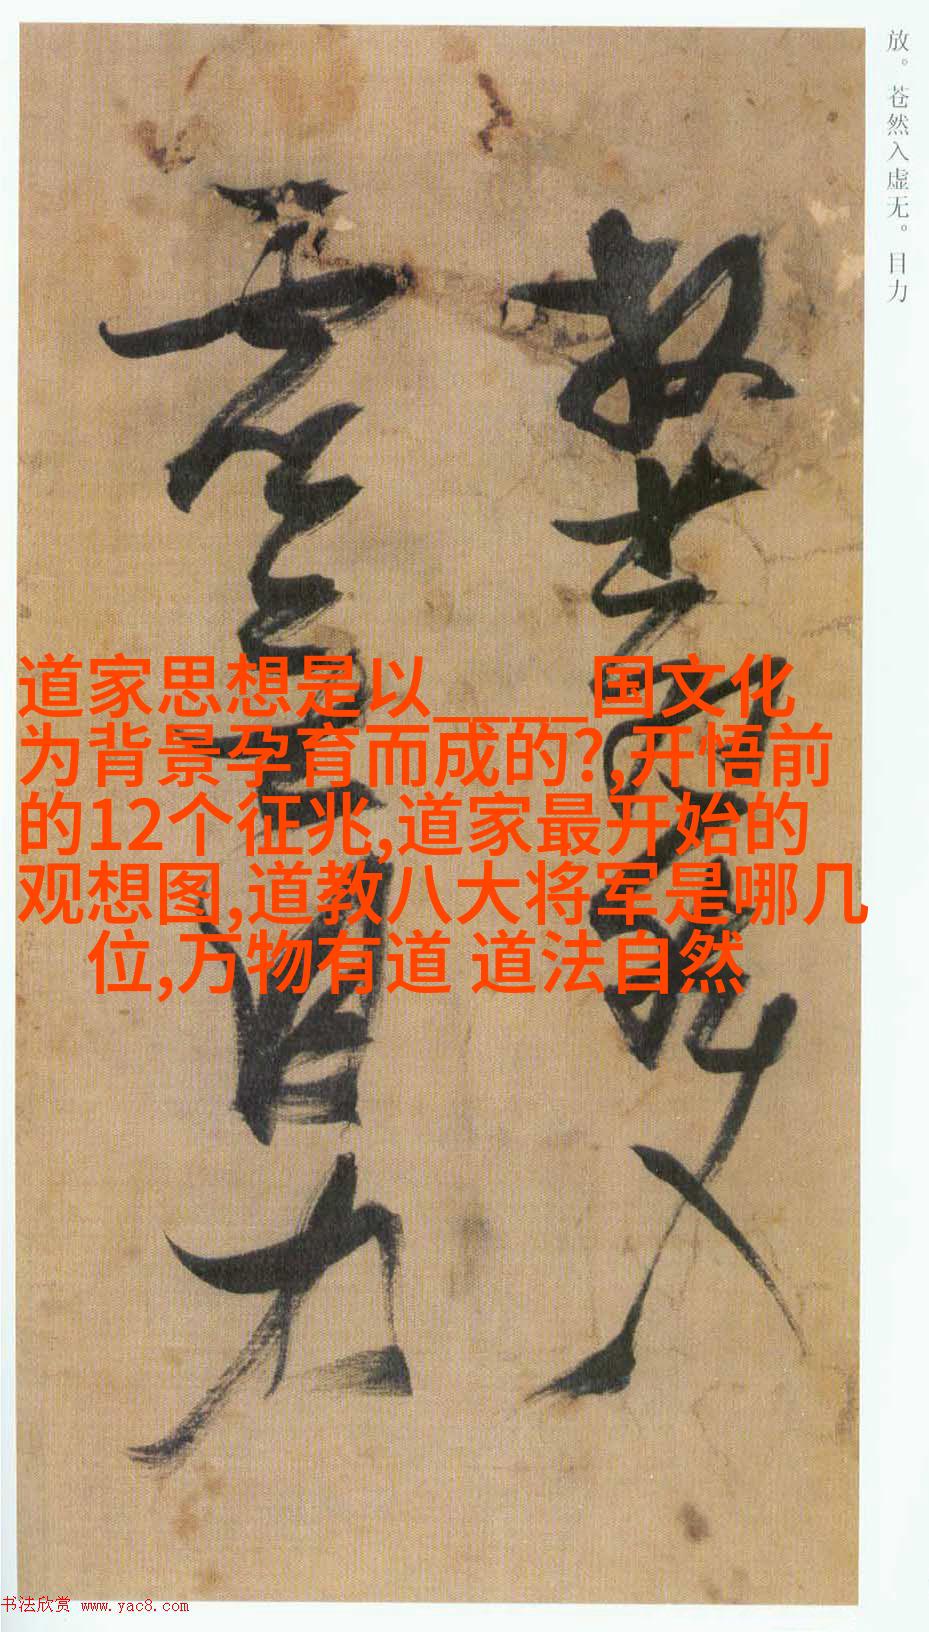 放。苍然入虚无。目力
放苍然入
虚无目力
道家思想是以_____国文化
为背景孕育而成的?,开悟前
的12个征兆,道家最开始的
观想图,道教八大将军是哪几
位,万物有道 道法自然
书法欣赏 www.yac8.com